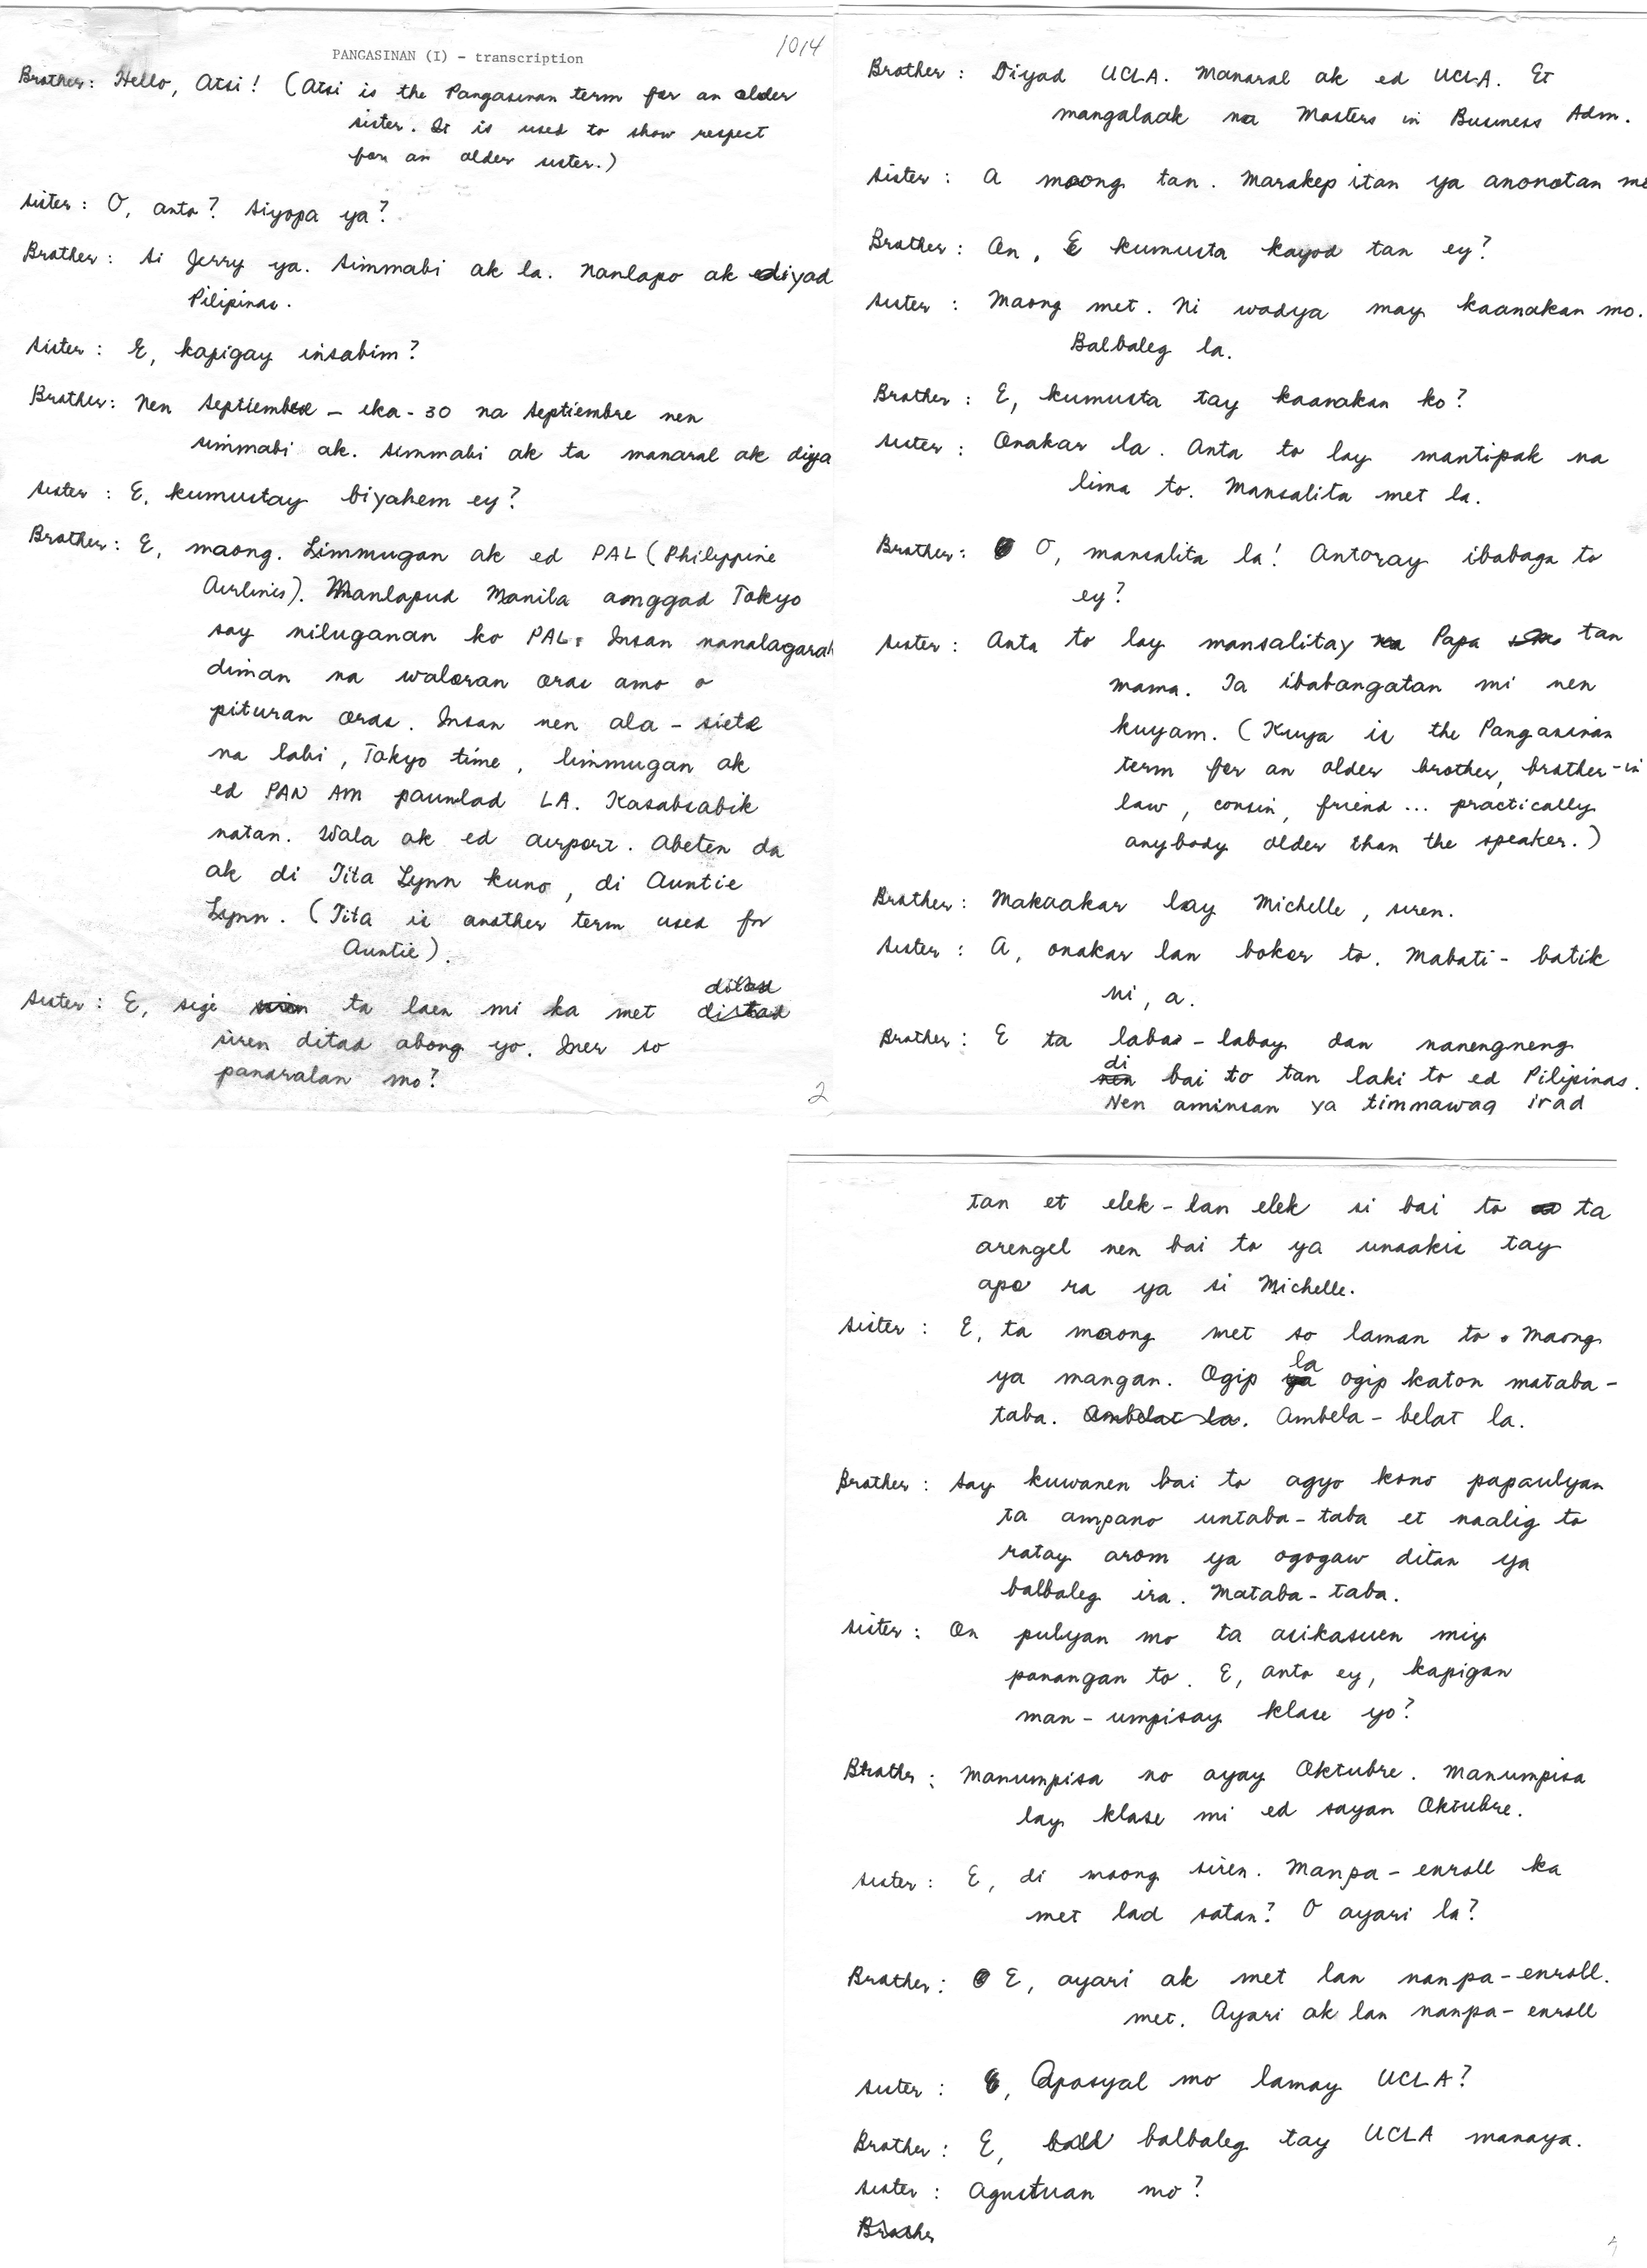 1014
PANGASINAN (I) - transcription
Brother: Hello, Atsi! (Atsi is the Pangasinan term for an older
sister. It is used to show respect
for an older sister.)
Sister: O, anto? Siyopa ya?
Brother: Si Jerry ya. Simmabi ak la. Nanlapo ak ediyad
Pilipinas.
Sister: E, kapigay insabim?
Brother: Nen Septiembre - ika-30 na Septiembre nen
simmabi ak. Simmabi ak ta manaral ak diya
Sister: E, kumustay biyahem ey?
Brother: E, maong. Limmugan ak ed PAL (Philippine
Airlines). Manlapud Manila anggad Tokyo
say niluganan ko PAL. Insan nanalagarak
diman na waloran oras amo o
pituran oras. Insan nen ala-siete
na labi, Tokyo time, limmugan ak
ed PAN AM paunlad LA. Kasabsabik
natan. Wala ak ed airport. Abeten da
ak di Tita Lynn kuno, di Auntie
Lynn. (Tita is another term used for
Auntie).
Sister: E, sige ta laen mi ka met ditad
siren ditad abong yo. Iner so
panaralan mo?
2
Brother: Diyad UCLA. Manaral ak ed UCLA. Et
mangalaak na Masters in Business Adm.
Sister: A maong tan. Marakep itan ya anonotan mo
Brother: On, E kumusta kayod tan ey?
Sister: Maong met. Ni wadya may kaanakan mo.
Balbaleg la.
Brother: E, kumusta tay kaanakan ko?
Sister: Onakar la. Anta to lay mantipak na
lima to. Mansalita met la.
Brother: O, mansalita la! Antoray ibabaga to
ey?
Sister: Anta to lay mansalitay Papa tan
mama. Ta ibabangatan mi nen
kuyam. (Kuya is the Pangasinan
term for an older brother, brother-in
law, cousin, friend... practically
anybody older than the speaker.)
Brother: Makaakar lay Michelle, siren.
Sister: A, onakar lan bokor to. Mabati-batik
ni, a.
Brother: E ta labay-labay dan nanengneng
di bai to tan laki to ed Pilipinas.
Nen aminsan ya timmawag irad
tan et elek-lan elek si bai to ta
arengel nen bai to ya unaakis tay
apo ra ya si Michelle.
Sister: E, ta maong met so laman to. Maong
ya mangan. Ogip la ogip katon mataba-
taba. Ambelat la. Ambela-belat la.
Brother: Say kuwanen bai to agyo kono papaulyan
ta ampano untaba-taba et naalig to
ratay arom ya ogogaw ditan ya
balbaleg ira. Mataba-taba.
Sister: On pulyan mo ta asikasuen miy
panangan to. E, anto ey, kapigan
man-umpisay klase yo?
Brother: Manumpisa no ayay Oktubre. Manumpisa
lay klase mi ed sayan Oktubre.
Sister: E, di maong siren. Manpa-enroll ka
met lad satan? O ayari la?
Brother: E, ayari ak met lan nanpa-enroll.
met. Ayari ak lan nanpa-enroll
Sister: E, Apasyal mo lamay UCLA?
Brother: E, balbaleg tay UCLA manaya.
Sister: Agustuan mo?
Brother